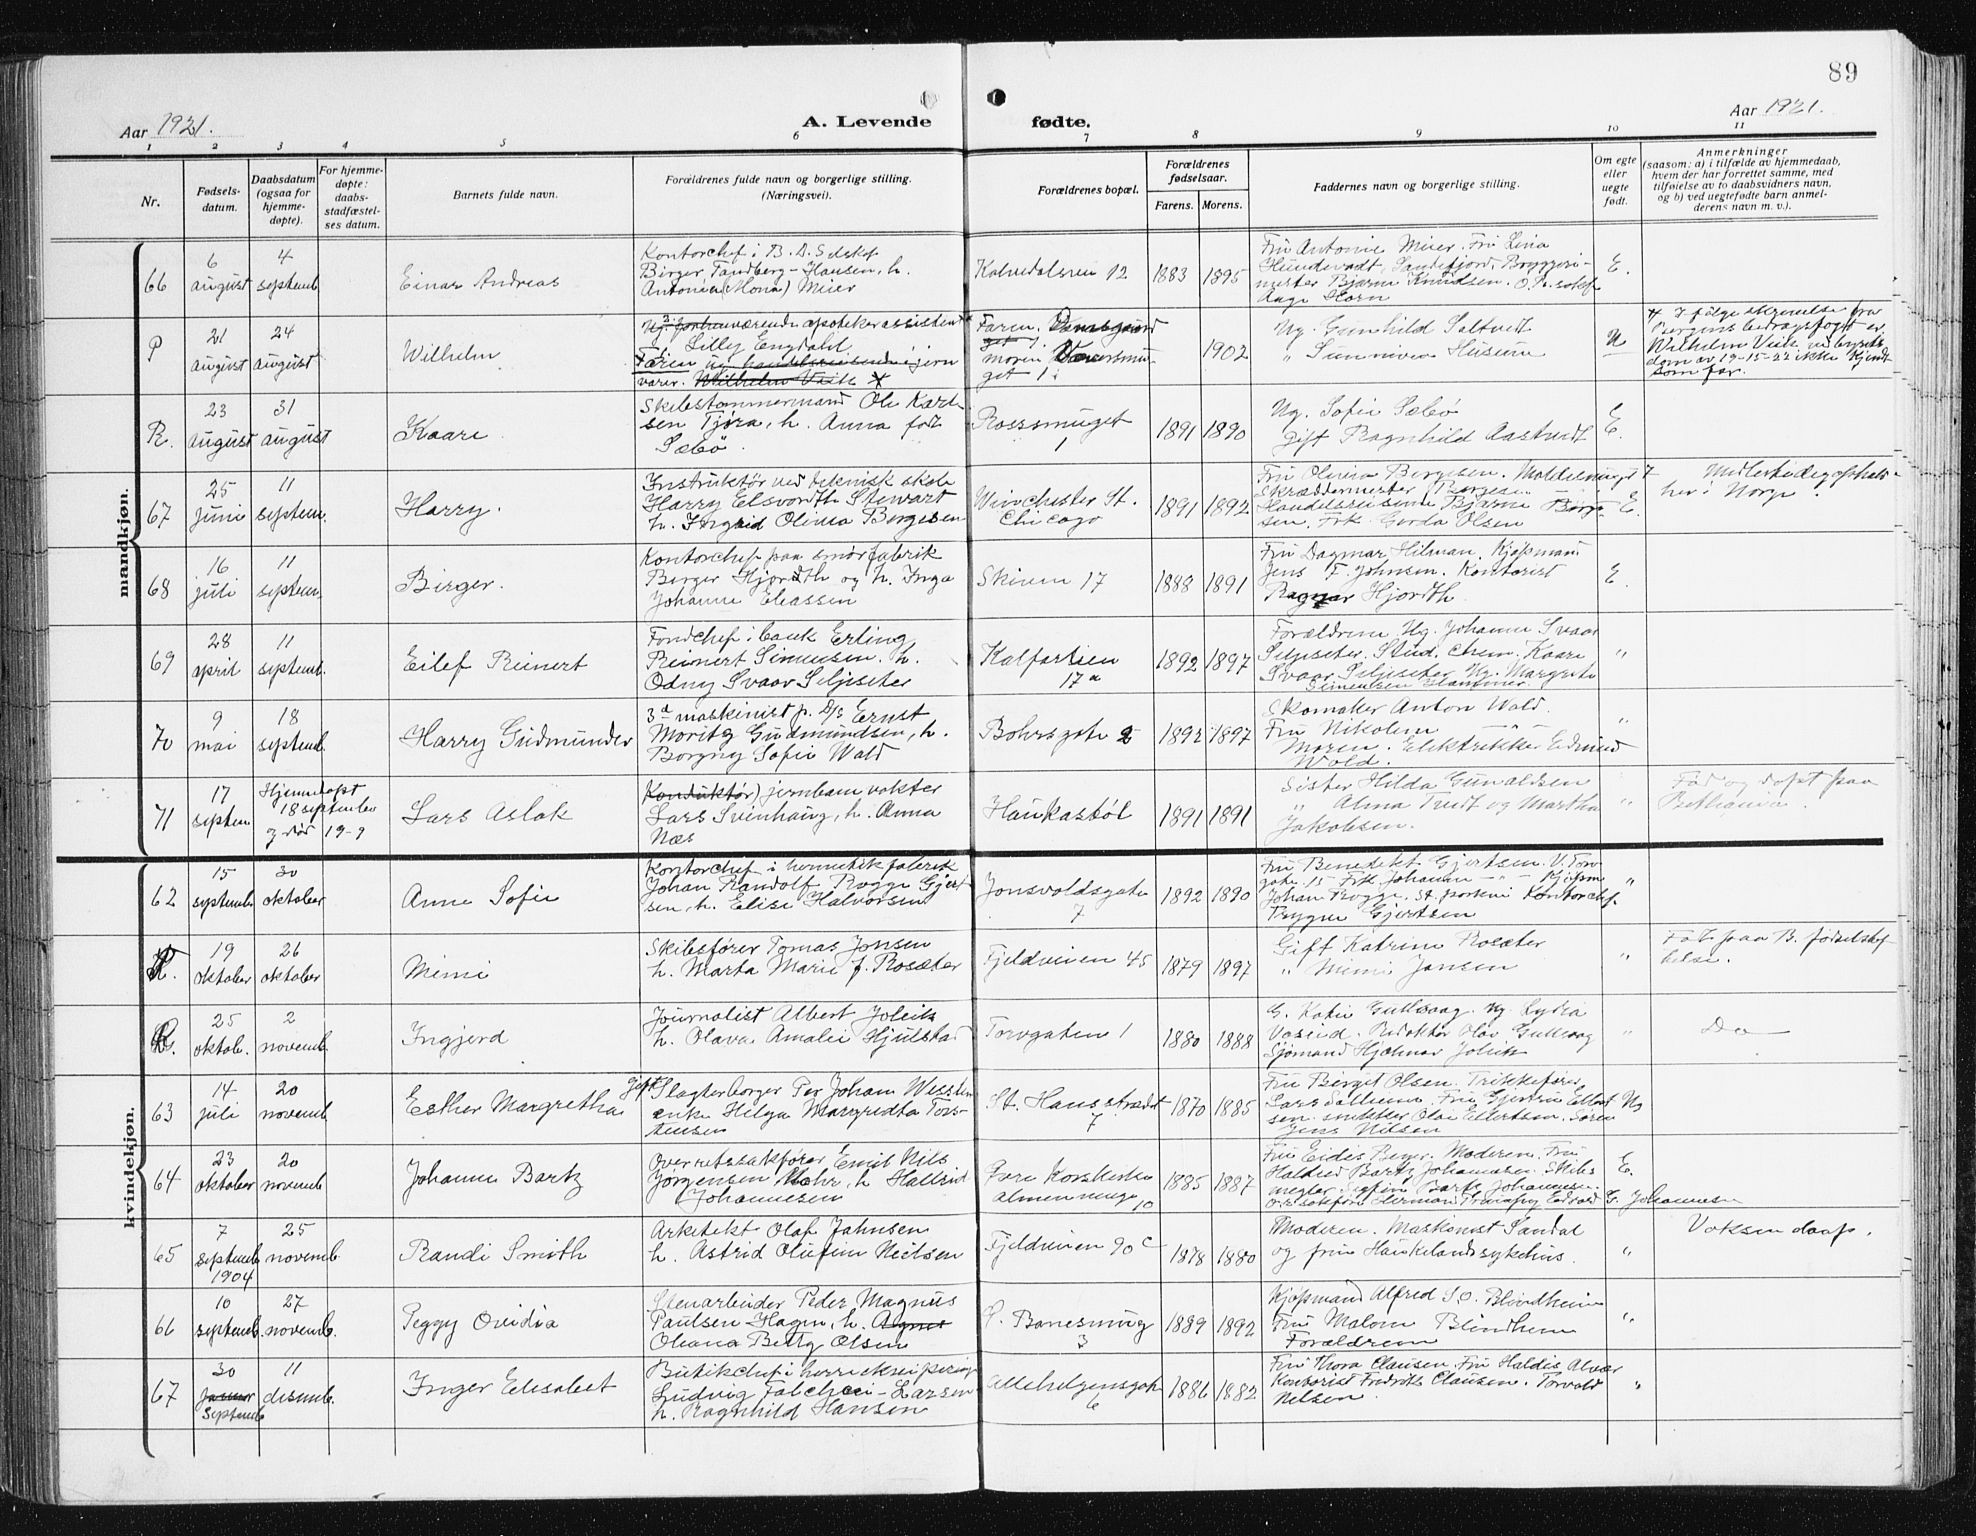 89
Aar 1921.
A. Levende
fødte.
Aar 1921.
1 2 3 4 5 6 7 8 9 10 11
Nr.
Fødsels-
datum.
Daabsdatum
(ogsaa for
hjemme-
døpte).
For hjemme-
døpte:
daabs-
stadfæstel-
ses datum.
Barnets fulde navn.
Forældrenes fulde navn og borgerlige stilling.
(Næringsvei).
Forældrenes bopæl.
Forældrenes
fødselsaar.
Farens. Morens.
Faddernes navn og borgerlige stilling.
Om egte
eller
uegte
født.
Anmerkninger
(saasom: a) i tilfælde av hjemmedaab,
hvem der har forrettet samme, med
tilføielse av to daabsvidners navn,
og b) ved uegtefødte barn anmel-
derens navn m. v.).
mandkjøn.
66
6 august
4 septemb
Einar Andreas
Kontorchef i B. D. Selskap
Birger Tandberg-Hansen, h.
Antonia (Mona) Meier
Kalvedalsven 12
1883 1895
Fru Antonie Meier. Fru Lina
Hundevadt, Sandefjord. Bryggeri-
mester Bjarne Knudsen. O.R. sakf.
Aage Horn
E.
P
21 august
24 august
Wilhelm
værende apotekerassistent
Lilly Engdahl
Faren ug. handelsreisende i jern
varer. Wilhelm Veik
Faren. Damsgaard
moren
get 1.
1902
Ug. Gunhild Saltvedt
" Sunniva Husum
U
I følge skrivelse fra
Bergens bidragsfoget er
Wilhelm Veik ved
dom av 19-15-22 ikke kjendt
som far.
R.
23 august
31 august
Kaare
Skibstømmermand Ole Karl-
sen Tjøra, h. Anna født
Sæbø
Rossmuget
1
1891 1890
Ug. Sofie Sæbø
gift Ragnhild Aastvedt
E.
67
25 juni
11 septem.
Harry.
Instruktør ved teknisk skole
Harry Elsvordth Stewart
h. Ingrid Olina Børgesen
Winchester St.
Chicago
1891 1892
Fru Olivia Børgesen. Møldesmuget 7
Skræddermester Børgesen
Handelsreisende Bjarne Børge-
sen. Frk Gerda Olsen
E.
Midlertidig ophols-
her i Norge
68
16 juli
11 septem.
Birger.
Kontorchef paa smørfabrik
Berger Hjordth og h. Inga
Johanne Eliassen
Skiven 17
1888 1891
Fru Dagmar Hilman. Kjøpmand
Jens F. Johnsen. Kontorist
Ragnar Hjordth
E.
69
28 april
11 septemb.
Eilef Reinert
Fondchef i bank Erling
Reinert Simensen. h.
Odny Svaar Seljeseter
Kalfarlien
17 a
1892 1897
Forældrene. Ug. Johanne Svaar
Seljeseter. Stud. Chem. Kaare
Svaar Seljeseter Ug. Margrete
Simensen Hammer
"
70
9 mai
18 septemb.
Harry Gudmunder
3 a maskinist p. D/S Ernst
Moritz Gudmundsen, h.
Borgny Sofie Wold
Bohrsgate 2
1892 1897
Skomaker Anton Wold.
Fru Nikoline — " —
Moren. Elektrikker Edmund
Wold.
"
71
17 septem
Hjemmedøpt
18 september
og død 19-9
Lars Aslak
Konduktør) jernbanevokter
Lars Sveinhaug, h. Anna
Næs
Haukastøl
1891 1891
Sister Hilda Gunaldsen
" Alma Tvedt og Martha
Jakobsen.
"
Fød og døpt paa
Bethania.
kvindekjøn.
62
15 septembr
30 oktober
Anne Sofie
Kontorchef i hermetikfabrik
Johan Randolf Rogge Gjert-
sen, h. Elise Halvorsen
Jonsvoldsgate
7
1892 1890
Fru Benedikt Gjertsen. V. Torv-
gate 15 Frk Johanne — " — Kjøpm
Johan Rogge. Kontorchef.
Trygve Gjertsen
"
R.
19 oktober
26 oktober
Mimi
Skibsfører Tomas Jensen
h. Marta Marie f. Rosæter
Fjeldveien 45
1879 1897
Gift Katrine Rosæter
" Mimi Jansen
"
Født paa B. fødselsstif-
telse.
R.
25 oktob.
2 novemb.
Ingjerd
Journalist Albert Joleik
h. Olava Amalie Hjulstad
Torvgaten 1
1880 1888
G. Katie Gullvaag. Ug. Lydia
Redaktør Olav Gullvaag
Sjømand Hjalmar Joleik
"
Do
63
14 juli
20 novemb
Esther Margretha
gift Slagterborger Per Johan
enke Helga Margredta Tors-
tensen
St. Hansstrædet
7
1870 1885
Fru Birget Olsen. Trikkefører
Lars Solheim. Fru Gjertine Ellert-
sen. snikker Olai Ellertsen. Søren
Jens Nilsen
Ug
64
23 oktober
20 novemb
Johanne Bartz
Overretssakfører Emil Nils
Jørgensen Mohr, h Halfrid
(Johannesen
Øvre Korskirke-
almenning
10
1885 1887
Fru Eidis Beyer. Moderen. Fru
Haldis Bartz Johannesen. Skibs-
megler Bartz Johannesen.
o.r. sakfører Herman Edvard G. Johannesen
E.
65
7 septemb.
1904
25 novemb.
Randi Smith
Arkitekt Olaf Jahnsen
h. Astrid Olufine Neilsen
Fjeldveien 90 c
1878 1880
Moderen. Maskinist Sandal
og frue Haukelandssykehus.
"
Voksen daap.
66
10 septemb.
27 novemb.
Peggy Ovidia
Stenarbeider Peder Magnus
Paulsen Hagen, h. Agnes
Oleana Betty Olsen
Ø. Banesmug
3
1889 1892
Kjøpmand Alfred S.O. Blindheim
Fru Malene Blindheim
Forældrene
"
67
30 Januar
Septemb
11 desemb.
Inger Elisabet
Butikchef i herreekvipering
Ludvig Falch-Larsen
h. Ragnhild Hansen
Allehelgensgate
6
1886 1882
Fru Thora Clausen. Fru Haldis Alvær
Kontorist Fredrik Clausen. Torvald
Nelsen
"